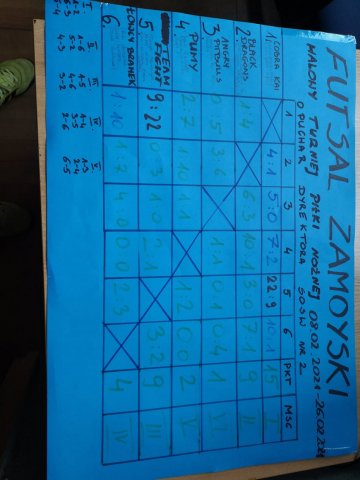 FUTSAL ZAMOYSKI
HALOWY TURNIEJ PIŁKI NOŻNEJ 08.02.2021-26.02.2021
O PUCHAR DYREKTORA SOSW NR 2
1 2 3 4 5 6 PKT MSC
1. COBRA KAI 4:1 5:0 7:2 22:9 10:1 15 I
2. BLACK DRAGONS 1:4 6:3 10:1 3:0 7:1 9 II
3. ANGRY PITBULLS 0:5 3:6 1:1 0:1 0:4 1 VI
4. PUMY 2:7 1:10 1:1 1:2 0:0 2 V
5. TEAM FIGHT 9:22 0:3 1:0 2:1 3:2 9 III
6. ŁOWCY BRAMEK 1:10 1:7 4:0 0:0 2:3 4 IV
I II III IV V
1-2 1-6 1-5 1-4 1-3
6-3 2-5 6-4 2-4
5-4 4-3 3-2 2-6 6-5